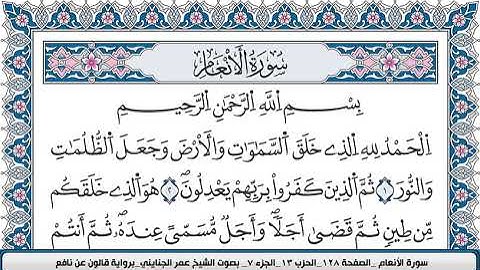 سُورَةُ الْأَنْعَامِ
بِسْمِ اللَّهِ الرَّحْمَٰنِ الرَّحِيمِ
اَ۬لْحَمْدُ لِلهِ اِ۬لذِے خَلَقَ اَ۬لسَّمَٰوَٰتِ وَالْأَرْضَ وَجَعَلَ اَ۬لظُّلُمَٰتِ
وَالنُّورَۖ ۝١ ثُمَّ اَ۬لذِينَ كَفَرُواْ بِرَبِّهِمْ يَعْدِلُونَۖ ۝٢ هُوَ اَ۬لذِے خَلَقَكُم
مِّن طِينٖ ثُمَّ قَضَىٰٓ أَجَلاٗۖ وَأَجَلٞ مُّسَمًّى عِندَهُۥۖ ثُمَّ أَنتُمْ
سورة الأنعام _الصفحة ١٢٨_ الحزب ١٣_الجزء ٧_ بصوت الشيخ عمر الجنايني_برواية قالون عن نافع